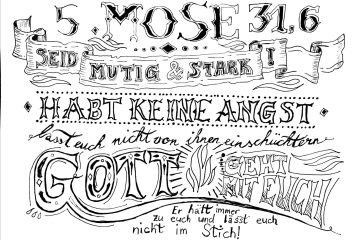 5. MOSE 31,6
SEID MUTIG & STARK!
HABT KEINE ANGST
lasst euch nicht von ihnen einschüchtern
GOTT GEHT MIT EUCH!
Er hält immer
zu euch und lässt euch
nicht im Stich!